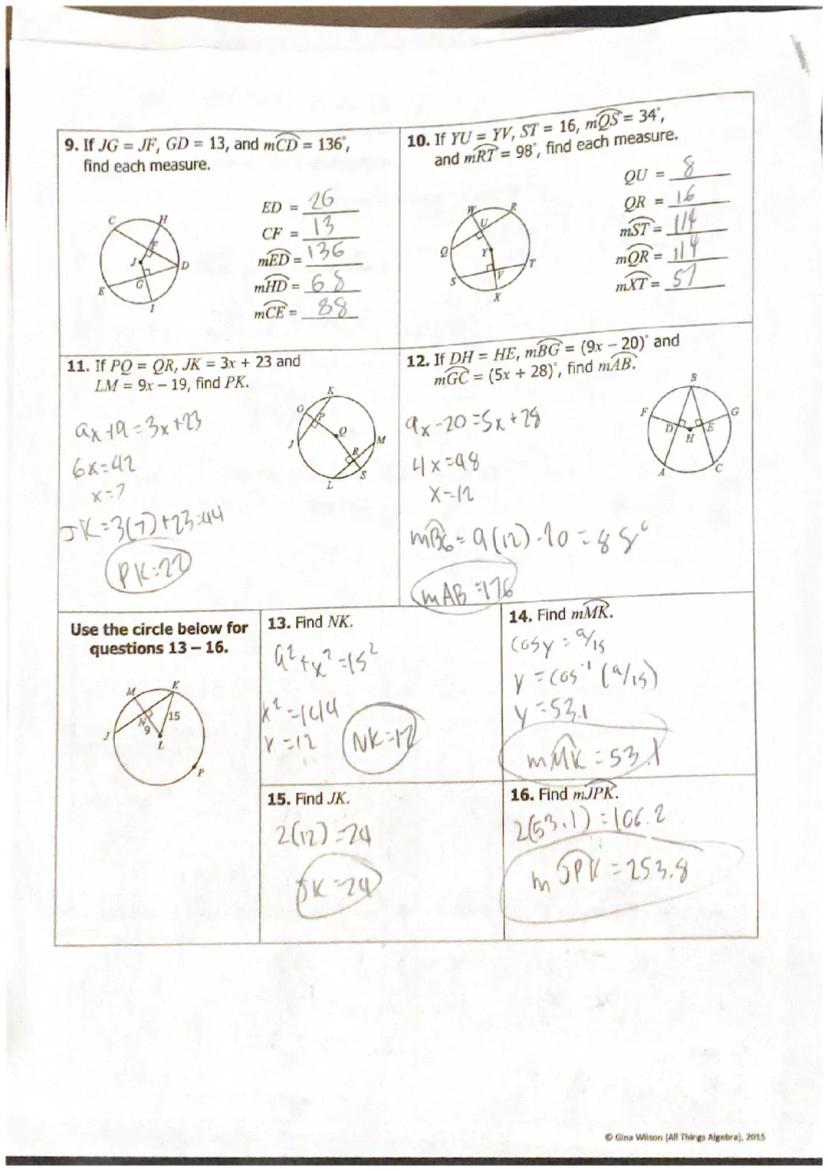 9. If JG = JF, GD = 13, and mCD = 136°,
find each measure.
C
H
F
J
D
G
E
I
ED = 26
CF = 13
mED = 136
mHD = 68
mCE = 88
10. If YU = YV, ST = 16, mQS = 34°,
and mRT = 98°, find each measure.
W
R
U
Q
Y
S
T
V
X
QU = 8
QR = 16
mST = 114
mQR = 114
mXT = 57
11. If PQ = QR, JK = 3x + 23 and
LM = 9x – 19, find PK.
K
O
P
Q
J
R
M
S
L
6x = 42
x = 7
JK = 3(7) + 23 = 44
PK = 22
12. If DH = HE, mBG = (9x – 20)° and
mGC = (5x + 28)°, find mAB.
B
F
G
D
E
H
A
C
9x - 20 = 5x + 28
4x = 48
x = 12
mBG = 9(12) - 20 = 88°
mAB = 176
Use the circle below for
questions 13 – 16.
M
K
N
15
J
9
L
P
13. Find NK.
9² + x² = 15²
x² = 144
x = 12
NK = 12
14. Find mMK.
cos y = 9/15
y = cos⁻¹ (9/15)
y = 53.1
mMK = 53.1
15. Find JK.
2(12) = 24
JK = 24
16. Find mJPK.
2(53.1) = 106.2
mJPK = 253.8
© Gina Wilson (All Things Algebra), 2015